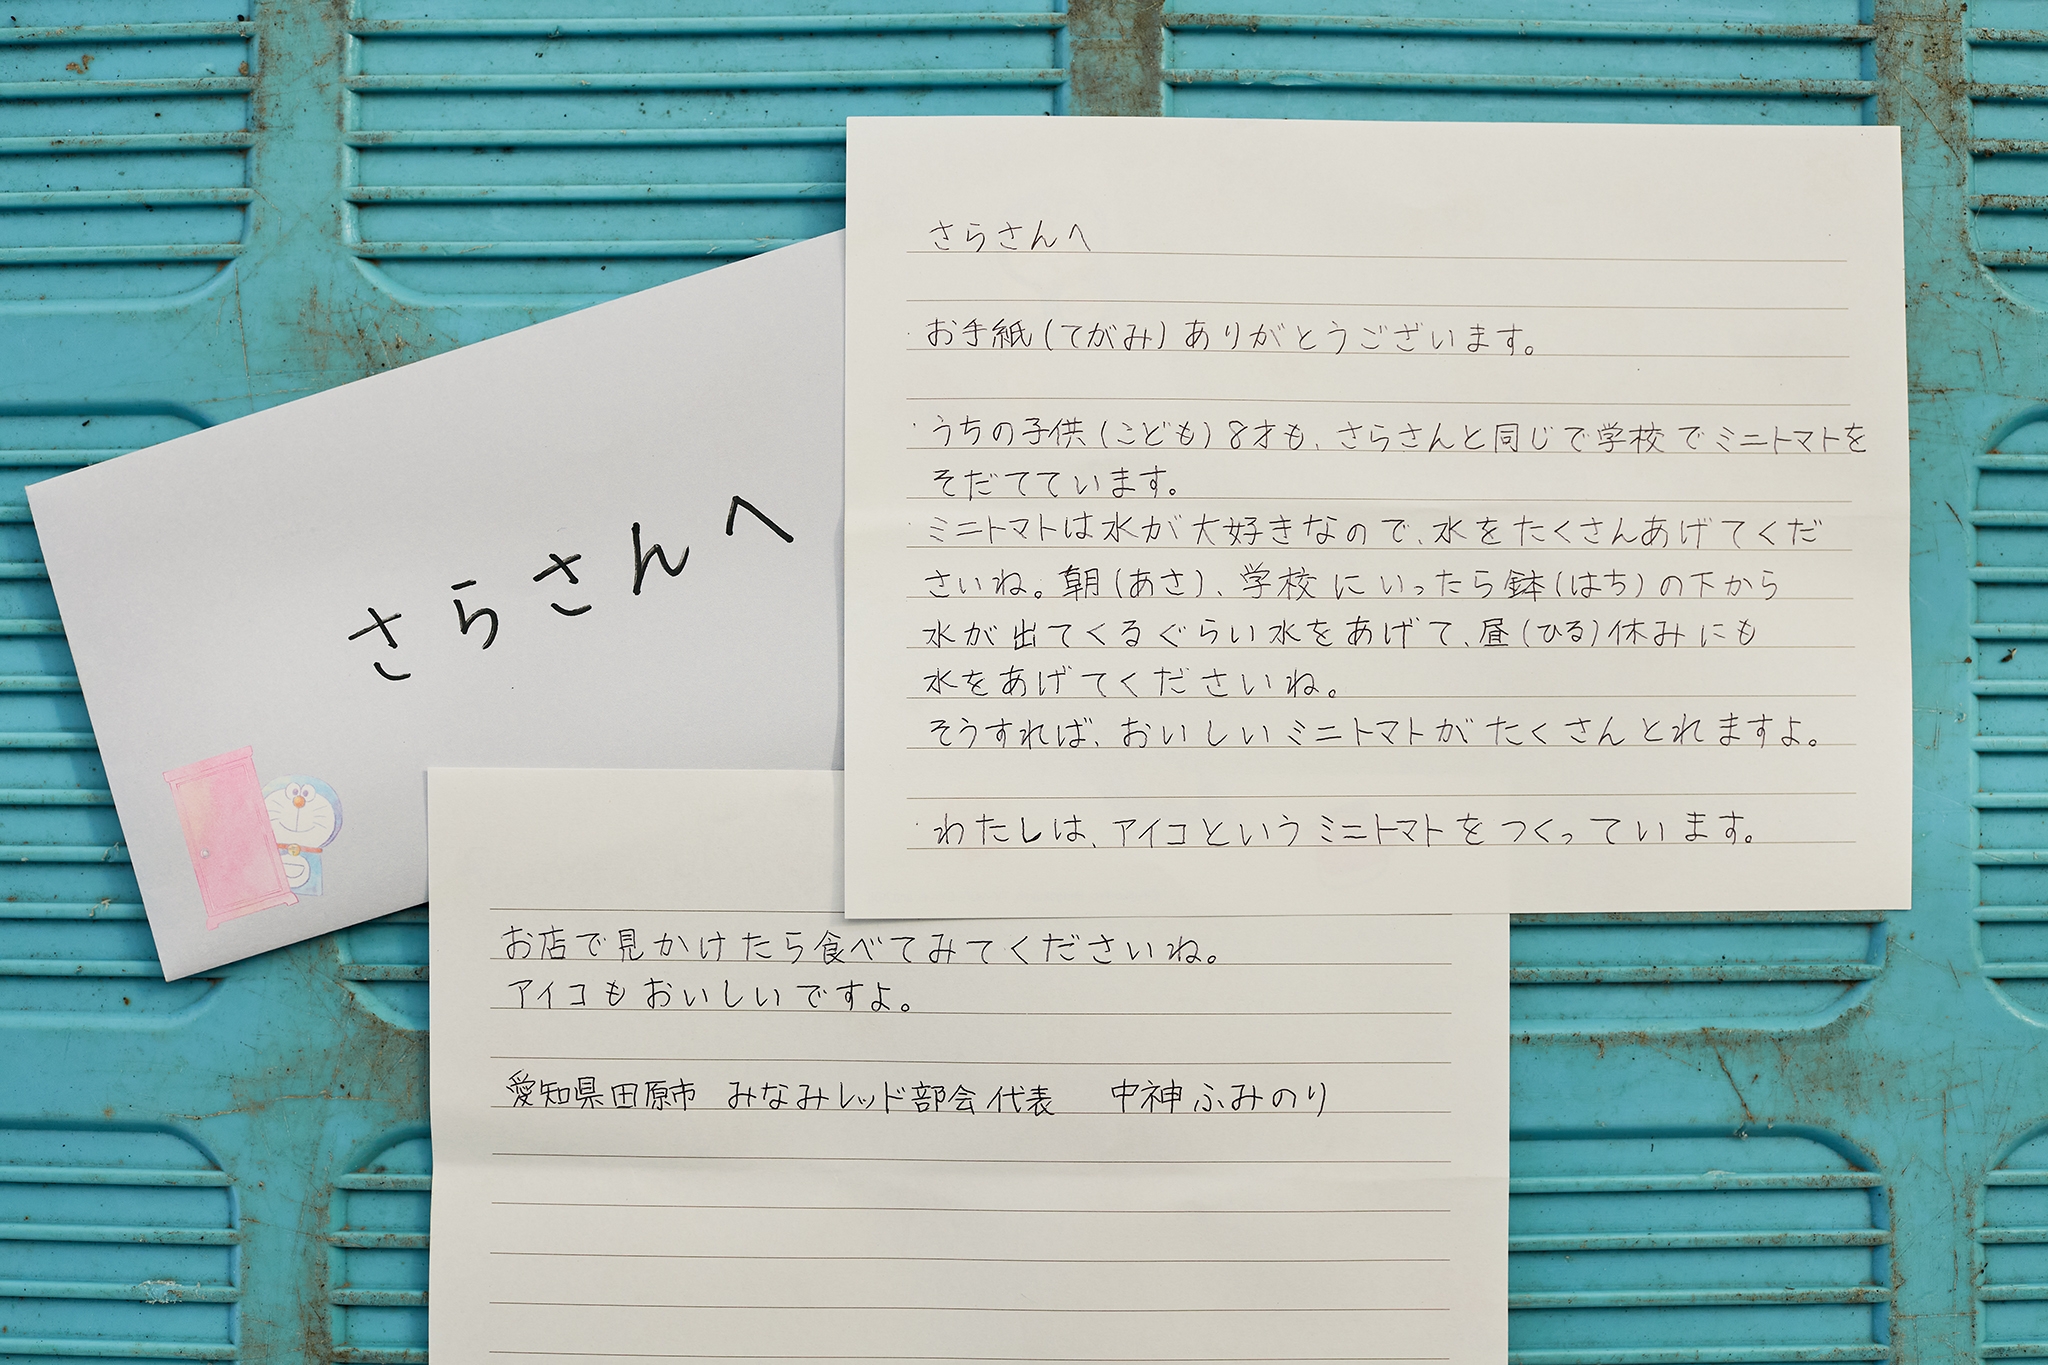 さらさんへ
さらさんへ
お手紙(てがみ)ありがとうございます。
うちの子供(こども)8才も、さらさんと同じで学校でミニトマトを
そだてています。
ミニトマトは水が大好きなので、水をたくさんあげてくだ
さいね。朝(あさ)、学校にいったら鉢(はち)の下から
水が出てくるぐらい水をあげて、昼(ひる)休みにも
水をあげてくださいね。
そうすれば、おいしいミニトマトがたくさんとれますよ。
わたしは、アイコというミニトマトをつくっています。
お店で見かけたら食べてみてくださいね。
アイコもおいしいですよ。
愛知県田原市 みなみレッド部会代表 中神ふみのり